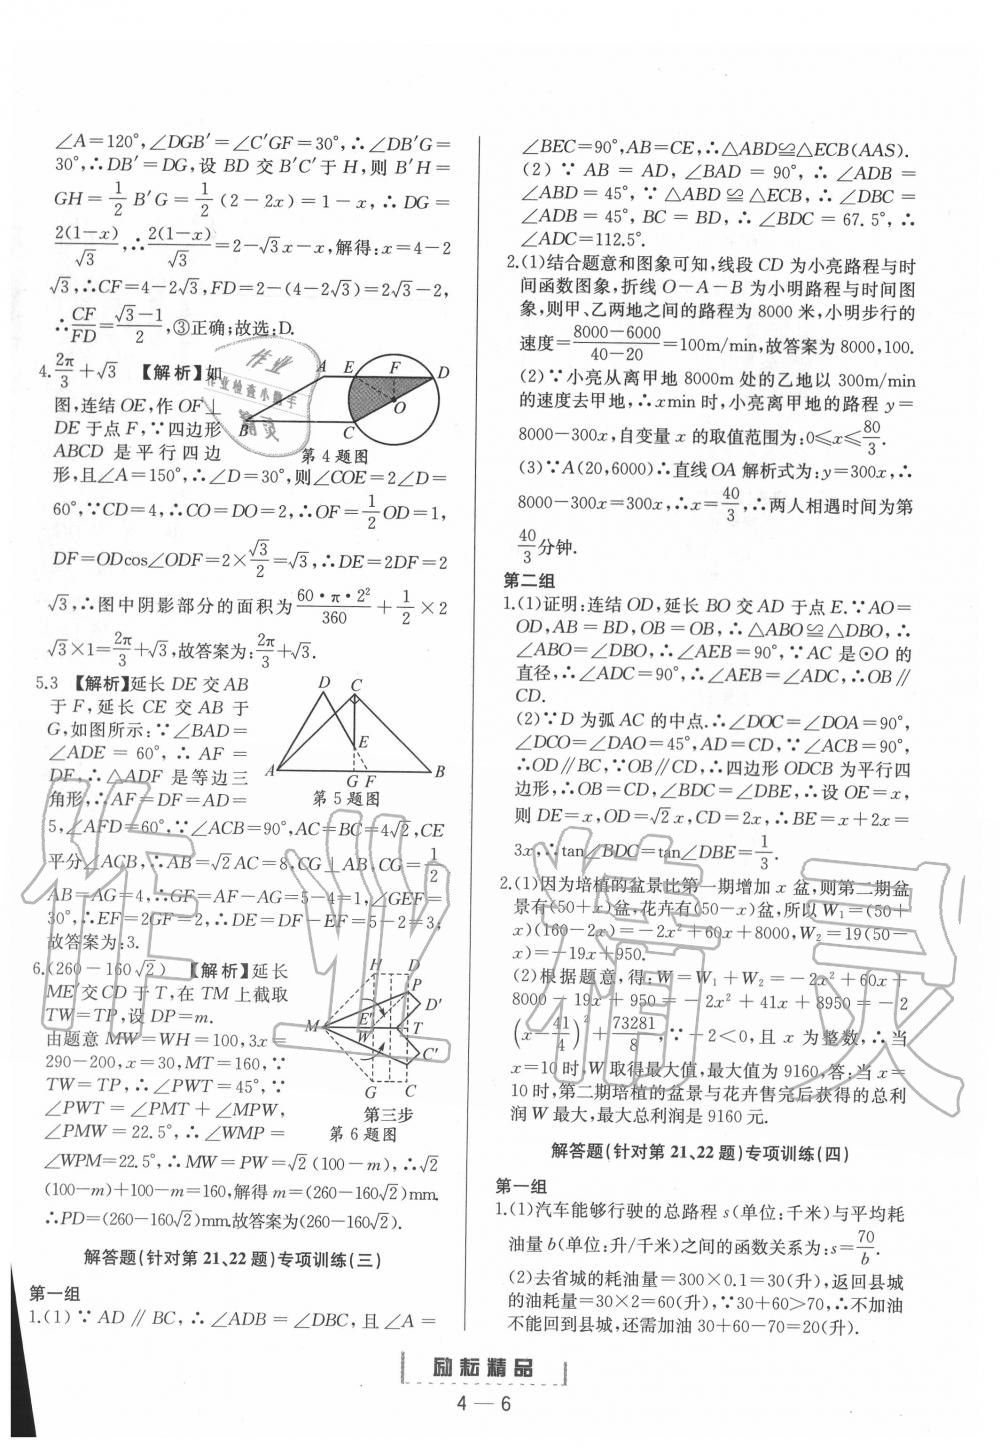 ∠A=120°,∠DGB′=∠C′GF=30°,∴∠DB′G=
30°,∴DB′=DG,设 BD 交 B′C′于 H,则 B′H=
GH=1/2 B′G=1/2(2-2x)=1-x,∴DG=
2(1-x)/√3,∴2(1-x)/√3=2-√3x-x,解得:x=4-2
√3,∴CF=4-2√3,FD=2-(4-2√3)=2√3-2,
∴CF/FD=(√3-1)/2,③正确;故选:D.
4.2π/3+√3 【解析】如
图,连结 OE,作 OF⊥
DE 于点 F,∵四边形
ABCD 是平行四边
形,且∠A=150°,∴∠D=30°,则∠COE=2∠D=
60°,∵CD=4,∴CO=DO=2,∴OF=1/2 OD=1,
DF=ODcos∠ODF=2×√3/2=√3,∴DE=2DF=2
√3,∴图中阴影部分的面积为 60·π·2²/360+1/2×2
√3×1=2π/3+√3,故答案为:2π/3+√3.
A E F D
O
B C
第 4 题图
5.3 【解析】延长 DE 交 AB
于 F,延长 CE 交 AB 于
G,如图所示:∵∠BAD=
∠ADE=60°,∴AF=
DF,∴△ADF 是等边三
角形,∴AF=DF=AD=
D C
E
A G F B
第 5 题图
5,∠AFD=60°,∵∠ACB=90°,AC=BC=4√2,CE
平分∠ACB,∴AB=√2AC=8,CG⊥AB,CG=1/2
AB=AG=4,∴GF=AF-AG=5-4=1,∠GEF=
30°,∴EF=2GF=2,∴DE=DF-EF=5-2=3,
故答案为:3.
6.(260-160√2) 【解析】延长
ME′交 CD 于 T,在 TM 上截取
TW=TP,设 DP=m.
由题意 MW=WH=100,3x=
290-200,x=30,MT=160,∵
TW=TP,∴∠PWT=45°,∵
∠PWT=∠PMT+∠MPW,
∠PMW=22.5°,∴∠WMP=
∠WPM=22.5°,∴MW=PW=√2(100-m),∴√2
(100-m)+100-m=160,解得 m=(260-160√2)mm.
∴PD=(260-160√2)mm.故答案为(260-160√2).
H D
P
D′
E′
M T
W
C′
G C
第三步
第 6 题图
解答题(针对第 21、22 题)专项训练(三)
第一组
1.(1)∵AD∥BC,∴∠ADB=∠DBC,且∠A=
∠BEC=90°,AB=CE,∴△ABD≌△ECB(AAS).
(2)∵AB=AD,∠BAD=90°,∴∠ADB=
∠ABD=45°,∵△ABD≌△ECB,∴∠DBC=
∠ADB=45°,BC=BD,∴∠BDC=67.5°,∴
∠ADC=112.5°.
2.(1)结合题意和图象可知,线段 CD 为小亮路程与时
间函数图象,折线 O-A-B 为小明路程与时间图
象,则甲、乙两地之间的路程为 8000 米,小明步行的
速度=(8000-6000)/(40-20)=100m/min,故答案为 8000,100.
(2)∵小亮从离甲地 8000m 处的乙地以 300m/min
的速度去甲地,∴xmin 时,小亮离甲地的路程 y=
8000-300x,自变量 x 的取值范围为:0≤x≤80/3.
(3)∵A(20,6000)∴直线 OA 解析式为:y=300x,∴
8000-300x=300x,∴x=40/3,∴两人相遇时间为第
40/3分钟.
第二组
1.(1)证明:连结 OD,延长 BO 交 AD 于点 E.∵AO=
OD,AB=BD,OB=OB,∴△ABO≌△DBO,∴
∠ABO=∠DBO,∴∠AEB=90°,∵AC 是⊙O 的
直径,∴∠ADC=90°,∴∠AEB=∠ADC,∴OB∥
CD.
(2)∵D 为弧 AC 的中点.∴∠DOC=∠DOA=90°,
∠DCO=∠DAO=45°,AD=CD,∵∠ACB=90°,
∴OD∥BC,∵OB∥CD,∴四边形 ODCB 为平行四
边形,∴OB=CD,∠BDC=∠DBE,∴设 OE=x,
则 DE=x,OD=√2x,CD=2x,∴BE=x+2x=
3x,∴tan∠BDC=tan∠DBE=1/3.
2.(1)因为培植的盆景比第一期增加 x 盆,则第二期盆
景有(50+x)盆,花卉有(50-x)盆,所以 W₁=(50+
x)(160-2x)=-2x²+60x+8000,W₂=19(50-
x)=-19x+950.
(2)根据题意,得:W=W₁+W₂=-2x²+60x+
8000-19x+950=-2x²+41x+8950=-2
(x-41/4)²+73281/8,∵-2<0,且 x 为整数,∴当
x=10 时,W 取得最大值,最大值为 9160,答:当 x=
10 时,第二期培植的盆景与花卉售完后获得的总利
润 W 最大,最大总利润是 9160 元.
解答题(针对第 21、22 题)专项训练(四)
第一组
1.(1)汽车能够行驶的总路程 s(单位:千米)与平均耗
油量 b(单位:升/千米)之间的函数关系为:s=70/b.
(2)去省城的耗油量=300×0.1=30(升),返回县城
的油耗量=30×2=60(升),∵30+60>70,∴不加油
不能回到县城,还需加油 30+60-70=20(升).
励耘精品
4 — 6
作业
作业检查小帮手
精灵
作业精灵